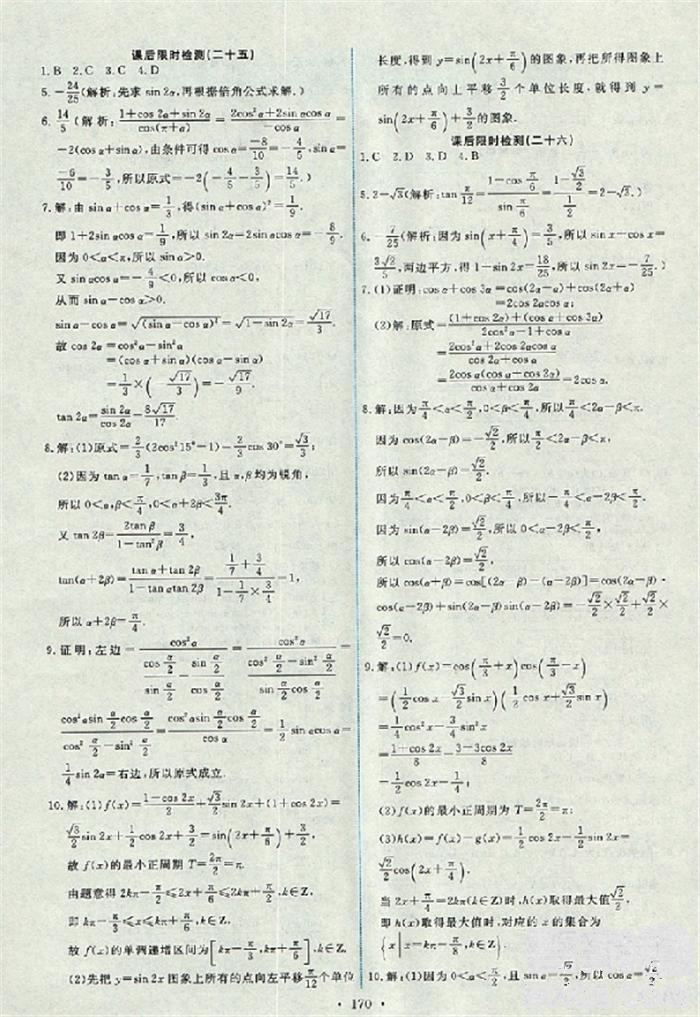 课后限时检测(二十五)
1.B 2.C 3.C 4.D
5.-24/25(解析:先求 sin 2α,再根据倍角公式求解.)
6.14/5(解析:(1+cos 2α+sin 2α)/cos(π+α)=(2cos²α+2sin αcos α)/(-cos α)=
-2(cos α+sin α),由条件可得 cos α=-8/10=-4/5,sin α=
-6/10=-3/5,所以原式=-2(-4/5-3/5)=14/5.)
7.解:由 sin α+cos α=1/3,得(sin α+cos α)²=1/9.
即 1+2sin αcos α=1/9,所以 sin 2α=2sin αcos α=-8/9.
因为 0<α<π,所以 sin α>0.
又 sin αcos α=-4/9<0,所以 cos α<0,
从而 sin α-cos α>0.
sin α-cos α=√(sin α-cos α)²=√(1-sin 2α)=√17/3.
故 cos 2α=cos²α-sin²α
=(cos α+sin α)(cos α-sin α)
=1/3×(-√17/3)=-√17/9.
tan 2α=sin 2α/cos 2α=8√17/17.
8.解:(1)原式=2/3(2cos²15°-1)=2/3cos 30°=√3/3;
(2)因为 tan α=1/7,tan β=1/3,且 α,β均为锐角,
所以 0<α,β<π/4,0<α+2β<3π/4.
又 tan 2β=2tan β/(1-tan²β)=3/4,
tan(α+2β)=(tan α+tan 2β)/(1-tan αtan 2β)=(1/7+3/4)/(1-1/7×3/4)=1,
所以 α+2β=π/4.
9.证明:左边=cos²α/(cos(α/2)/sin(α/2)-sin(α/2)/cos(α/2))=cos²α/((cos²(α/2)-sin²(α/2))/(sin(α/2)cos(α/2)))=
cos²αsin(α/2)cos(α/2)/(cos²(α/2)-sin²(α/2))=cos²αsin(α/2)cos(α/2)/cos α=1/2 sin αcos α=
1/4 sin 2α=右边,所以原式成立.
10.解:(1)f(x)=(1-cos 2x)/2+√3/2 sin 2x+(1+cos 2x)=
√3/2 sin 2x+1/2 cos 2x+3/2=sin(2x+π/6)+3/2,
故 f(x)的最小正周期 T=2π/2=π.
由题意得 2kπ-π/2≤2x+π/6≤2kπ+π/2,k∈Z,
即 kπ-π/3≤x≤kπ+π/6,k∈Z,
故 f(x)的单调递增区间为[kπ-π/3,kπ+π/6],k∈Z.
(2)先把 y=sin 2x 图象上所有的点向左平移 π/12 个单位
长度,得到 y=sin(2x+π/6)的图象,再把所得图象上
所有的点向上平移 3/2 个单位长度,就得到 y=
sin(2x+π/6)+3/2的图象.
课后限时检测(二十六)
1.C 2.D 3.D 4.B
5.2-√3(解析:tan π/12=(1-cos π/6)/sin π/6=(1-√3/2)/(1/2)=2-√3.)
6.-7/25(解析:因为 sin(x+π/4)=3/5,所以 sin x+cos x=
3√2/5,两边平方,得 1+sin 2x=18/25,所以 sin 2x=-7/25.)
7.(1)证明:cos α+cos 3α=cos(2α-α)+cos(2α+α)
=2cos 2αcos α;
(2)解:原式=((1+cos 2α)+(cos α+cos 3α))/(2cos²α-1+cos α)
=(2cos²α+2cos 2αcos α)/(cos 2α+cos α)
=2cos α(cos α+cos 2α)/(cos α+cos 2α)=2cos α.
8.解:因为π/4<α<π/2,0<β<π/4,所以π/4<2α-β<π.
因为 cos(2α-β)=-√2/2,所以π/2<2α-β<π,
所以 sin(2α-β)=√2/2.
因为π/4<α<π/2,0<β<π/4,所以-π/4<α-2β<π/2.
因为 sin(α-2β)=√2/2,所以 0<α-2β<π/2,
所以 cos(α-2β)=√2/2,
所以 cos(α+β)=cos[(2α-β)-(α-2β)]=cos(2α-β)·
cos(α-2β)+sin(2α-β)sin(α-2β)=-√2/2×√2/2+√2/2×
√2/2=0.
9.解:(1)f(x)=cos(π/3+x)cos(π/3-x)
=(1/2 cos x-√3/2 sin x)(1/2 cos x+√3/2 sin x)
=1/4 cos²x-3/4 sin²x
=(1+cos 2x)/8-(3-3cos 2x)/8
=1/2 cos 2x-1/4;
(2)f(x)的最小正周期为 T=2π/2=π;
(3)h(x)=f(x)-g(x)=1/2 cos 2x-1/2 sin 2x=
√2/2 cos(2x+π/4).
当 2x+π/4=2kπ(k∈Z)时,h(x)取得最大值√2/2,
即 h(x)取得最大值时,对应的 x 的集合为
{x|x=kπ-π/8,k∈Z}.
10.解:(1)因为 0<α<π/2,且 sin α=√2/2,所以 cos α=√2/2
· 170 ·